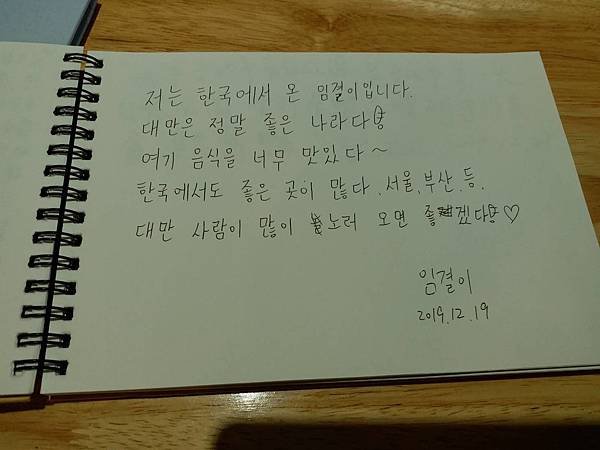 저는 한국에서 온 임결이입니다.
대만은 정말 좋은 나라다
여기 음식을 너무 맛있다~
한국에서도 좋은 곳이 많다. 서울, 부산, 등.
대만 사람이 많이 노러 오면 좋겠다♡
임결이
2019.12.19